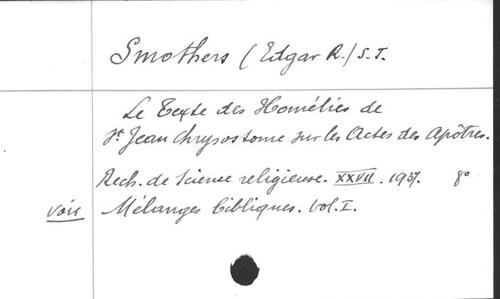 Smothers (Edgar R.) S.J.
Le Texte des Homélies de
St Jean Chrysostome sur les Actes des Apôtres.
Rech. de Science religieuse. XXVII. 1937. 8°
voir Mélanges bibliques. Vol. I.